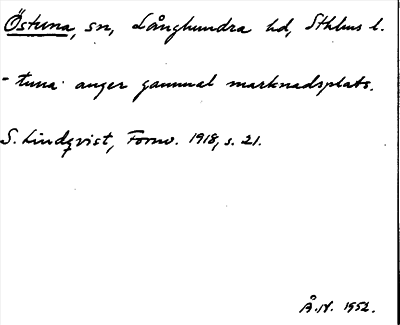 Östuna, sn, Långhundra hd, Sthlms l.
-tuna anger gammal marknadsplats.
S. Lindqvist, Fornv. 1918, s. 21.
Å.N. 1952.